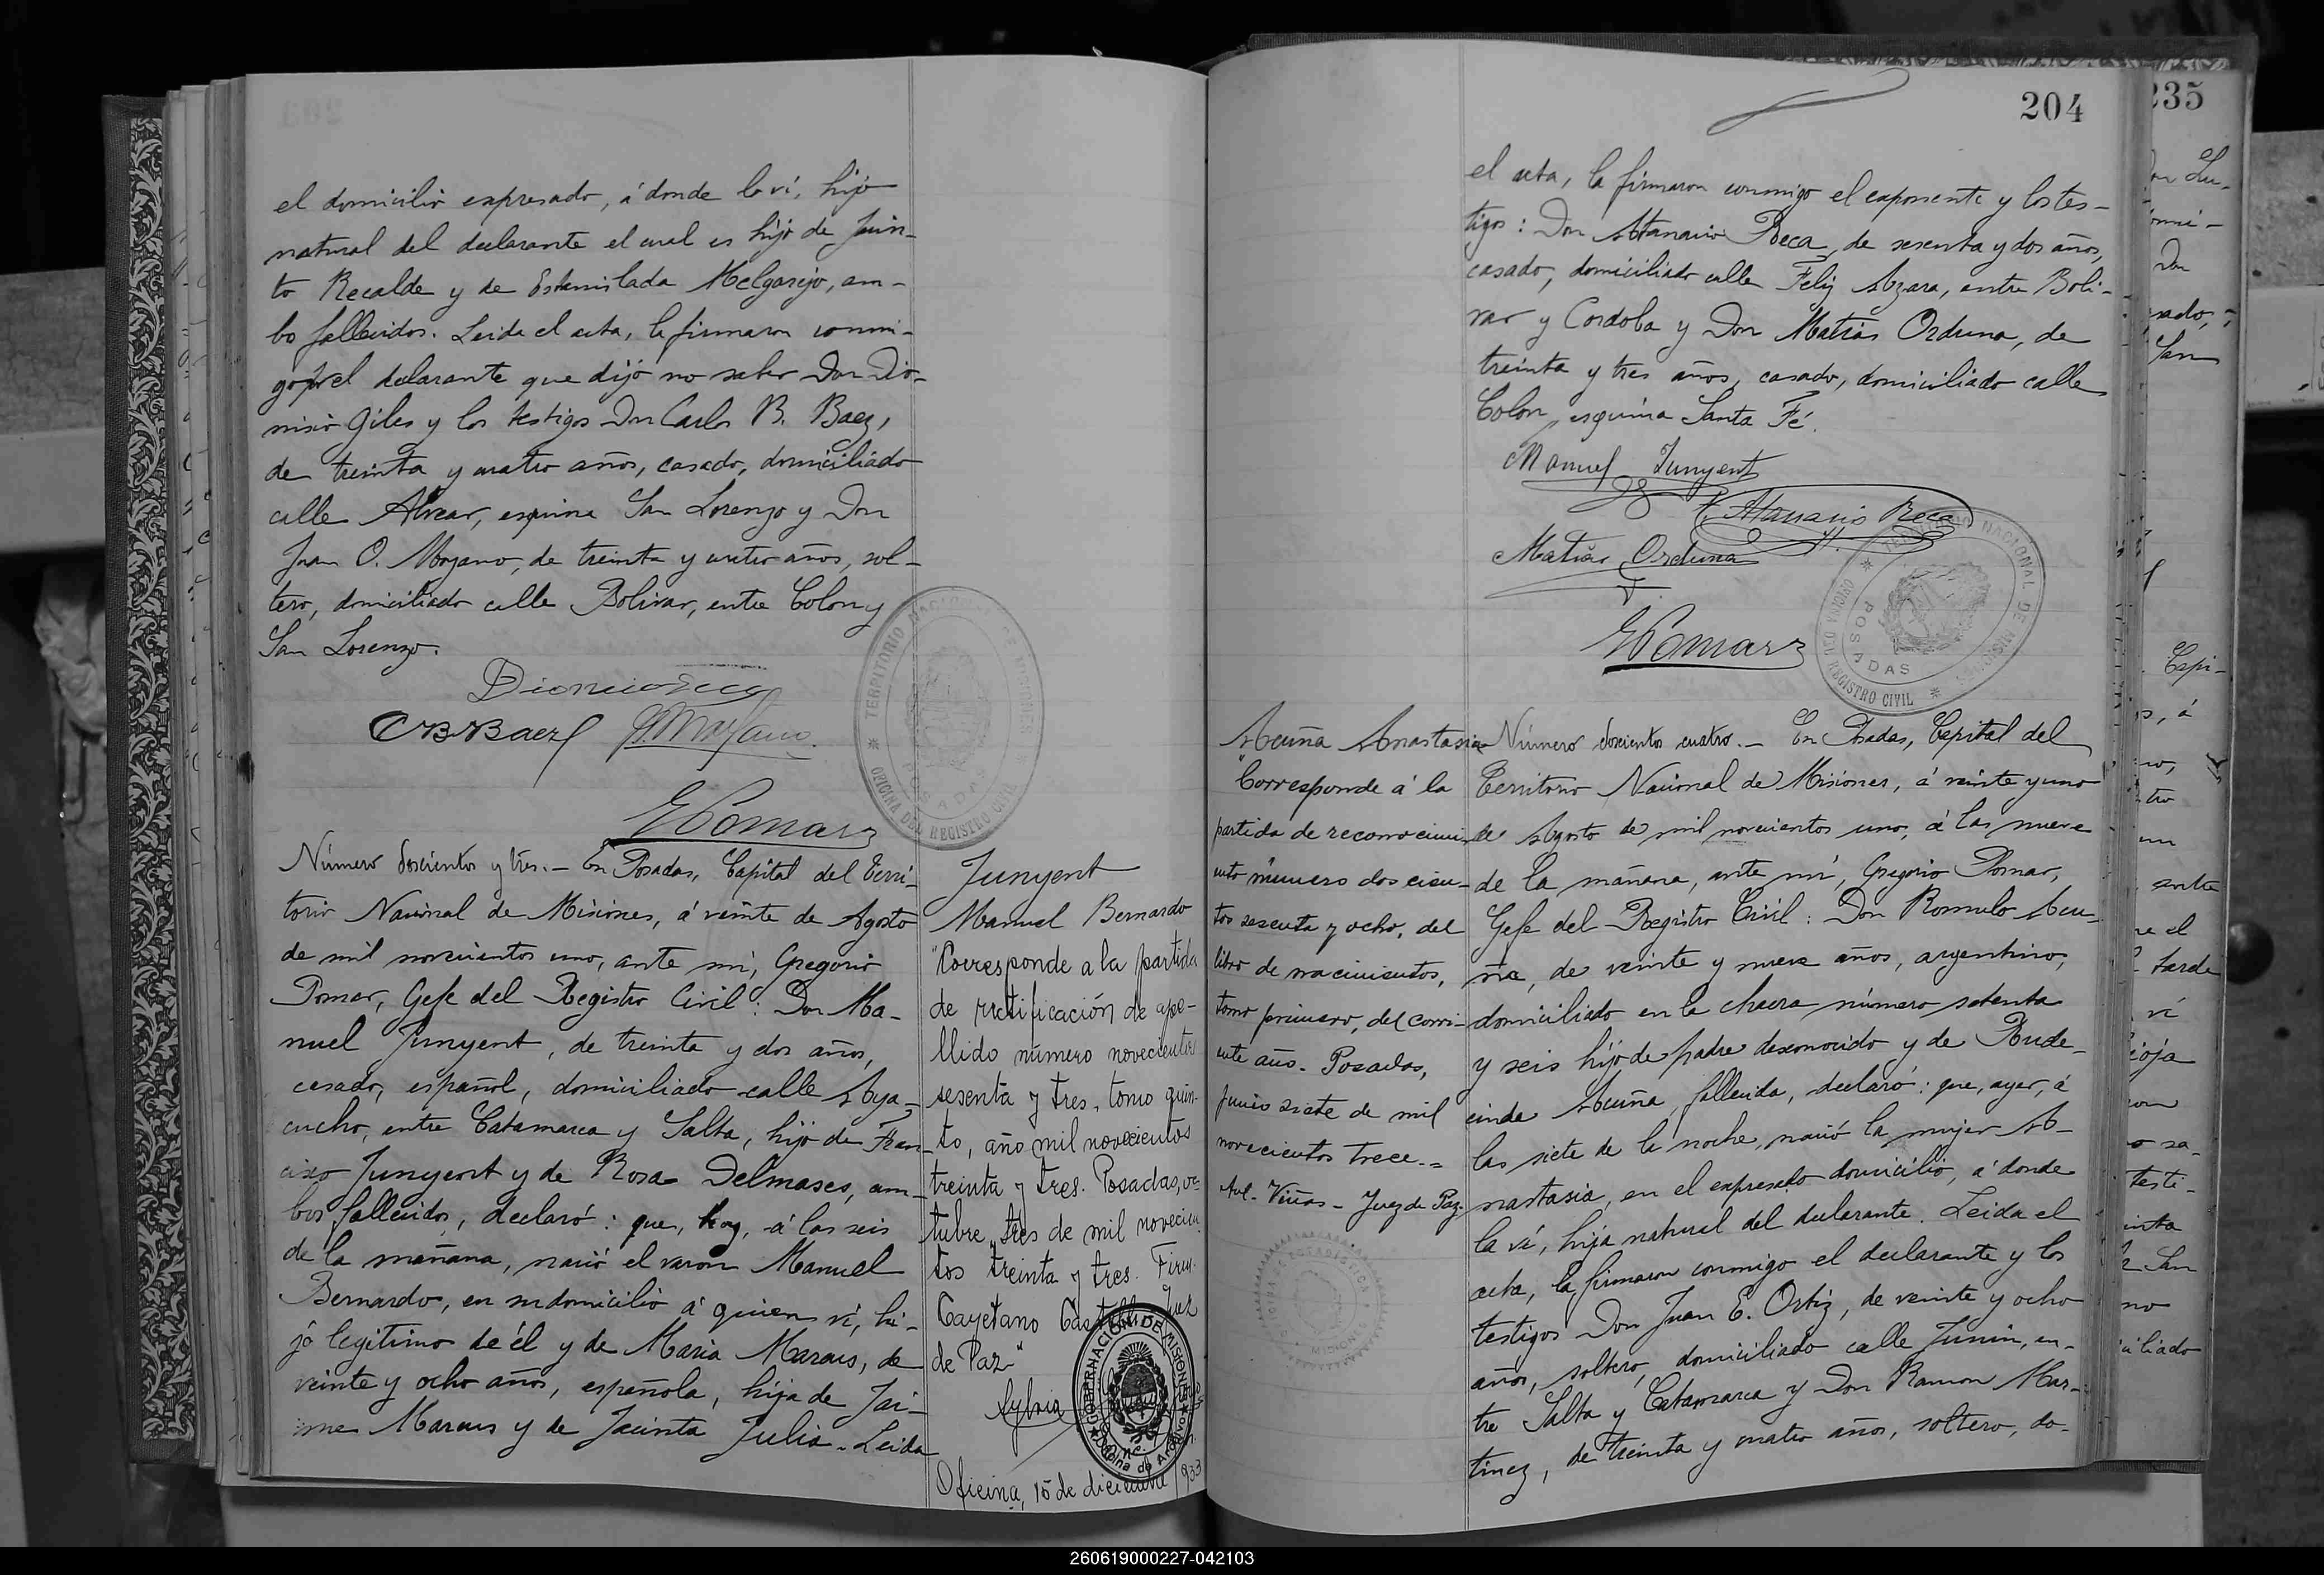 el domicilio expresado, á donde lo ví, hijo
natural del declarante el cual es hijo de Jacin-
to Recalde y de Estanislada Melgarejo, am-
bo fallecidos. Leida el acta, la firmaron conmi-
go por el declarante que dijo no saber Don Dio-
nisio Giles y los testigos Don Carlos B. Baez,
de treinta y cuatro años, casado, domiciliado
calle Alvear, esquina San Lorenzo y Don
Juan O. Moyano, de treinta y cuatro años, sol-
tero, domiciliado calle Bolivar, entre Colon y
San Lorenzo.
CBBaez
GPomar
TERRITORIO NACIONAL DE MISIONES
OFICINA DEL REGISTRO CIVIL
POSADAS
Número doscientos y tres.- En Posadas, Capital del Terri-
torio Nacional de Misiones, á veinte de Agosto
de mil novecientos uno, ante mí, Gregorio
Pomar, Gefe del Registro Civil: Don Ma-
nuel Junyent, de treinta y dos años,
casado, español, domiciliado calle Aya-
cucho, entre Catamarca y Salta, hijo de Fran-
cisco Junyent y de Rosa Delmases, am-
bos fallecidos, declaró: que, hoy, á las seis
de la mañana, nació el varon Manuel
Bernardo, en su domicilio á quien ví, hi-
jo legitimo de él y de Maria Marcus, de
veinte y ocho años, española, hija de Jai-
me Marcus y de Jacinta Julia. Leida
Junyent
Manuel Bernardo
"Corresponde a la partida
de rectificación de ape-
llido número novecientos
sesenta y tres, tomo quin-
to, año mil novecientos
treinta y tres. Posadas, oc-
tubre tres de mil novecien-
tos treinta y tres. Firm.
Cayetano Castelli Juez
de Paz"
GOBERNACIÓN DE MISIONES
Oficina, 15 de diciembre 1933
204
el acta, la firmaron conmigo el exponente y los tes-
tigos: Don Atanacio Reca, de sesenta y dos años,
casado, domiciliado calle Feliz Azara, entre Boli-
var y Cordoba y Don Matias Orduna, de
treinta y tres años, casado, domiciliado calle
Colon, esquina Santa Fé.
Manuel Junyent
Atanacio Reca
Matias Orduna
GPomar
TERRITORIO NACIONAL DE MISIONES
REGISTRO CIVIL
POSADAS
Acuña Anastasia
"Corresponde á la
partida de reconocimi-
ento número doscien-
tos sesenta y ocho, del
libro de nacimientos,
tomo primero, del corri-
ente año. Posadas,
Junio siete de mil
novecientos trece.=
Avl. Viñas - Juez de Paz.
Número doscientos cuatro.- En Posadas, Capital del
Territorio Nacional de Misiones, á veinte y uno
de Agosto de mil novecientos uno, á las nueve
de la mañana, ante mí, Gregorio Pomar,
Gefe del Registro Civil: Don Romulo Acu-
ña, de veinte y nueve años, argentino,
domiciliado en la chacra número setenta
y seis hijo de padre desconocido y de Rude-
cinda Acuña, fallecida, declaró: que, ayer, á
las siete de la noche, nació la mujer A-
nastasia, en el expresado domicilio, á donde
la ví, hija natural del declarante. Leida el
acta, la firmaron conmigo el declarante y los
testigos Don Juan E. Ortiz, de veinte y ocho
años, soltero, domiciliado calle Junin, en-
tre Salta y Catamarca y Don Ramon Mar-
tinez, de treinta y cuatro años, soltero, do-
235
260619000227-042103